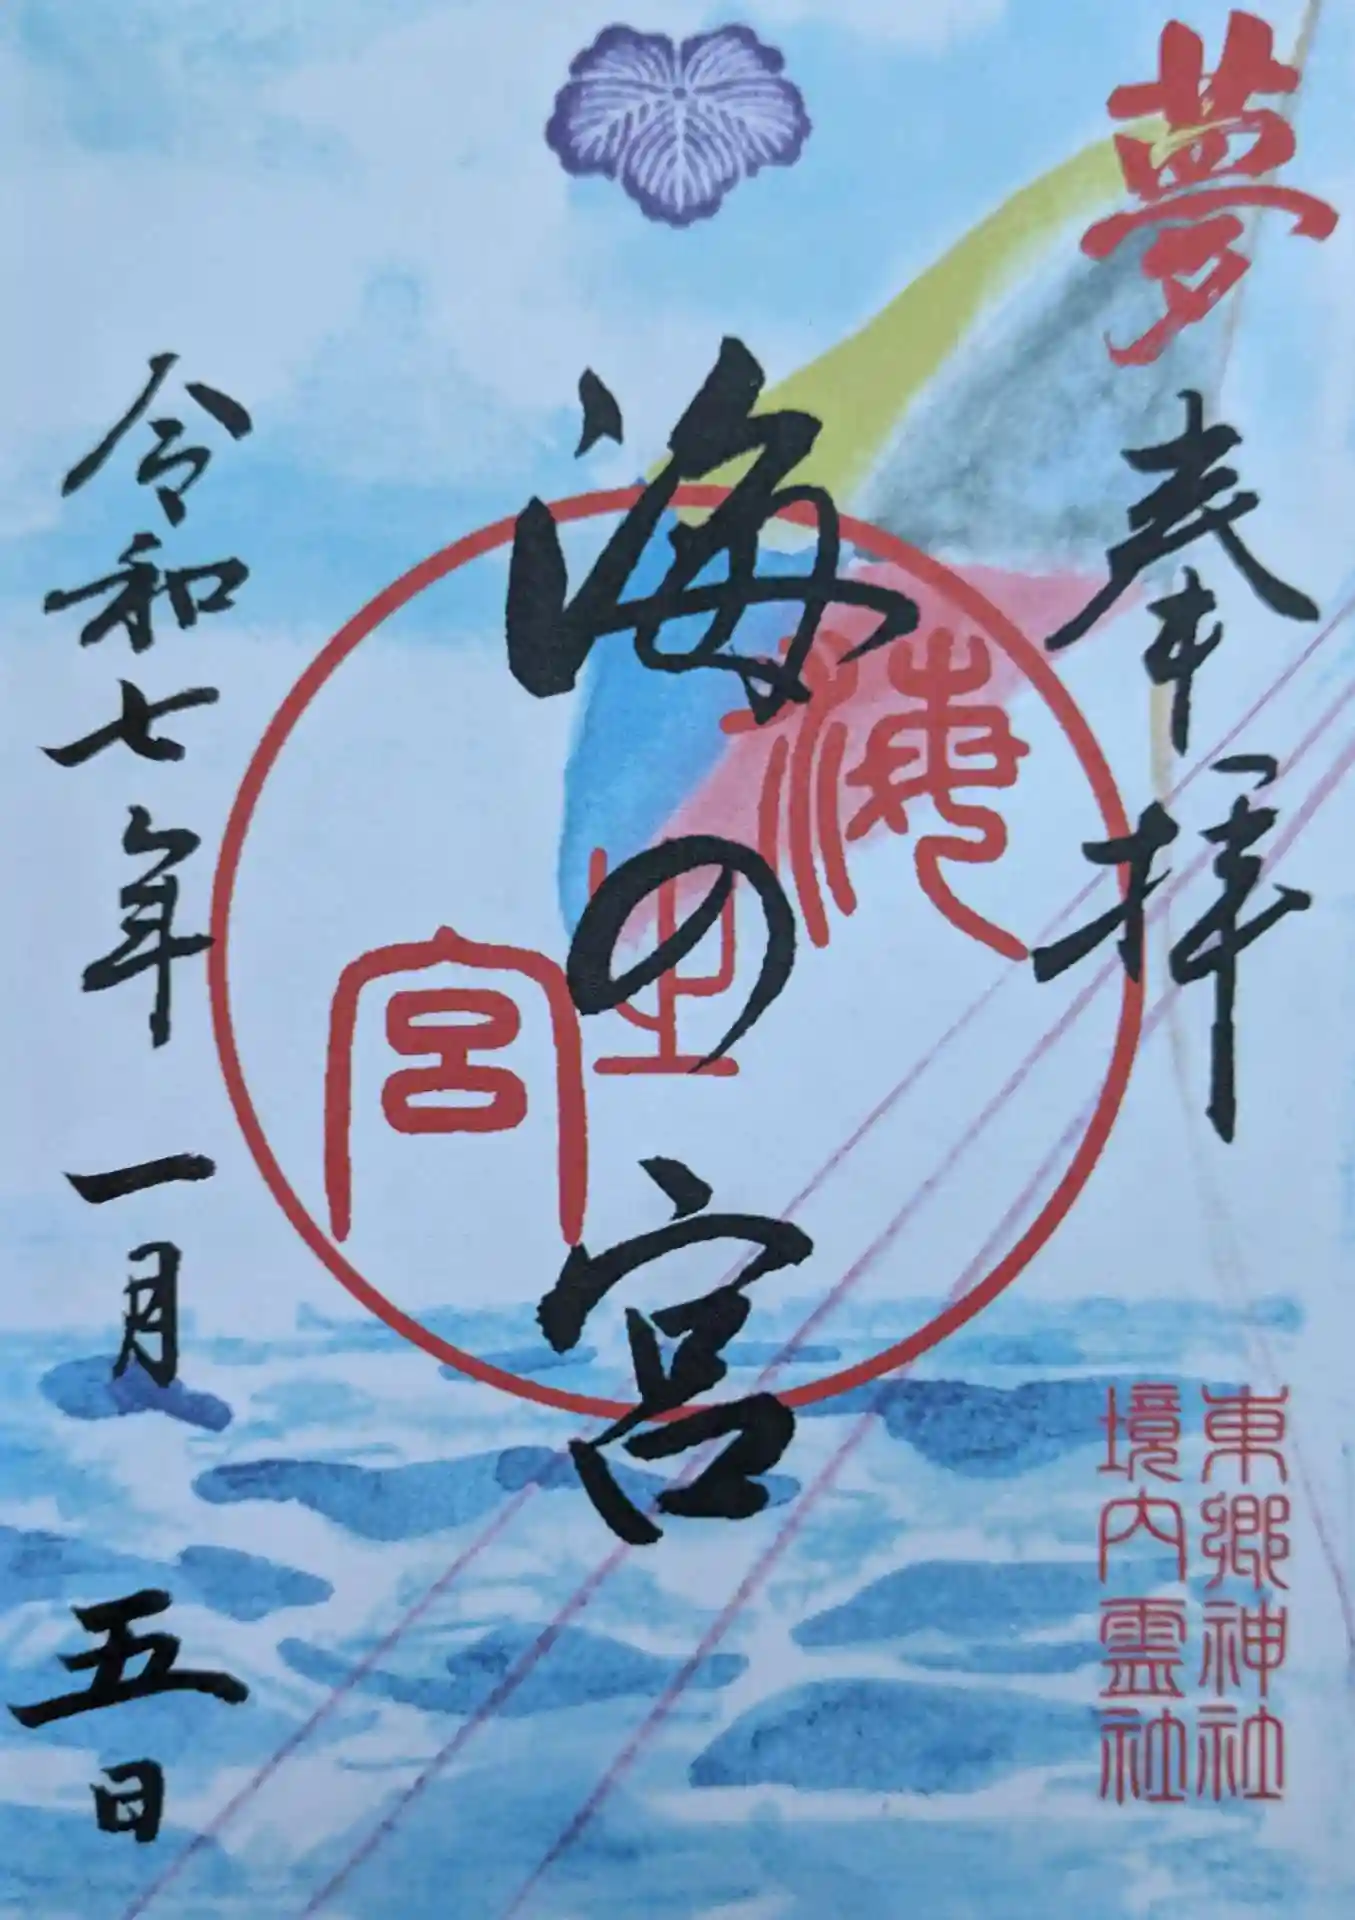 夢
奉拝
海の宮
海之宮
令和七年一月五日
東郷神社
境内霊社